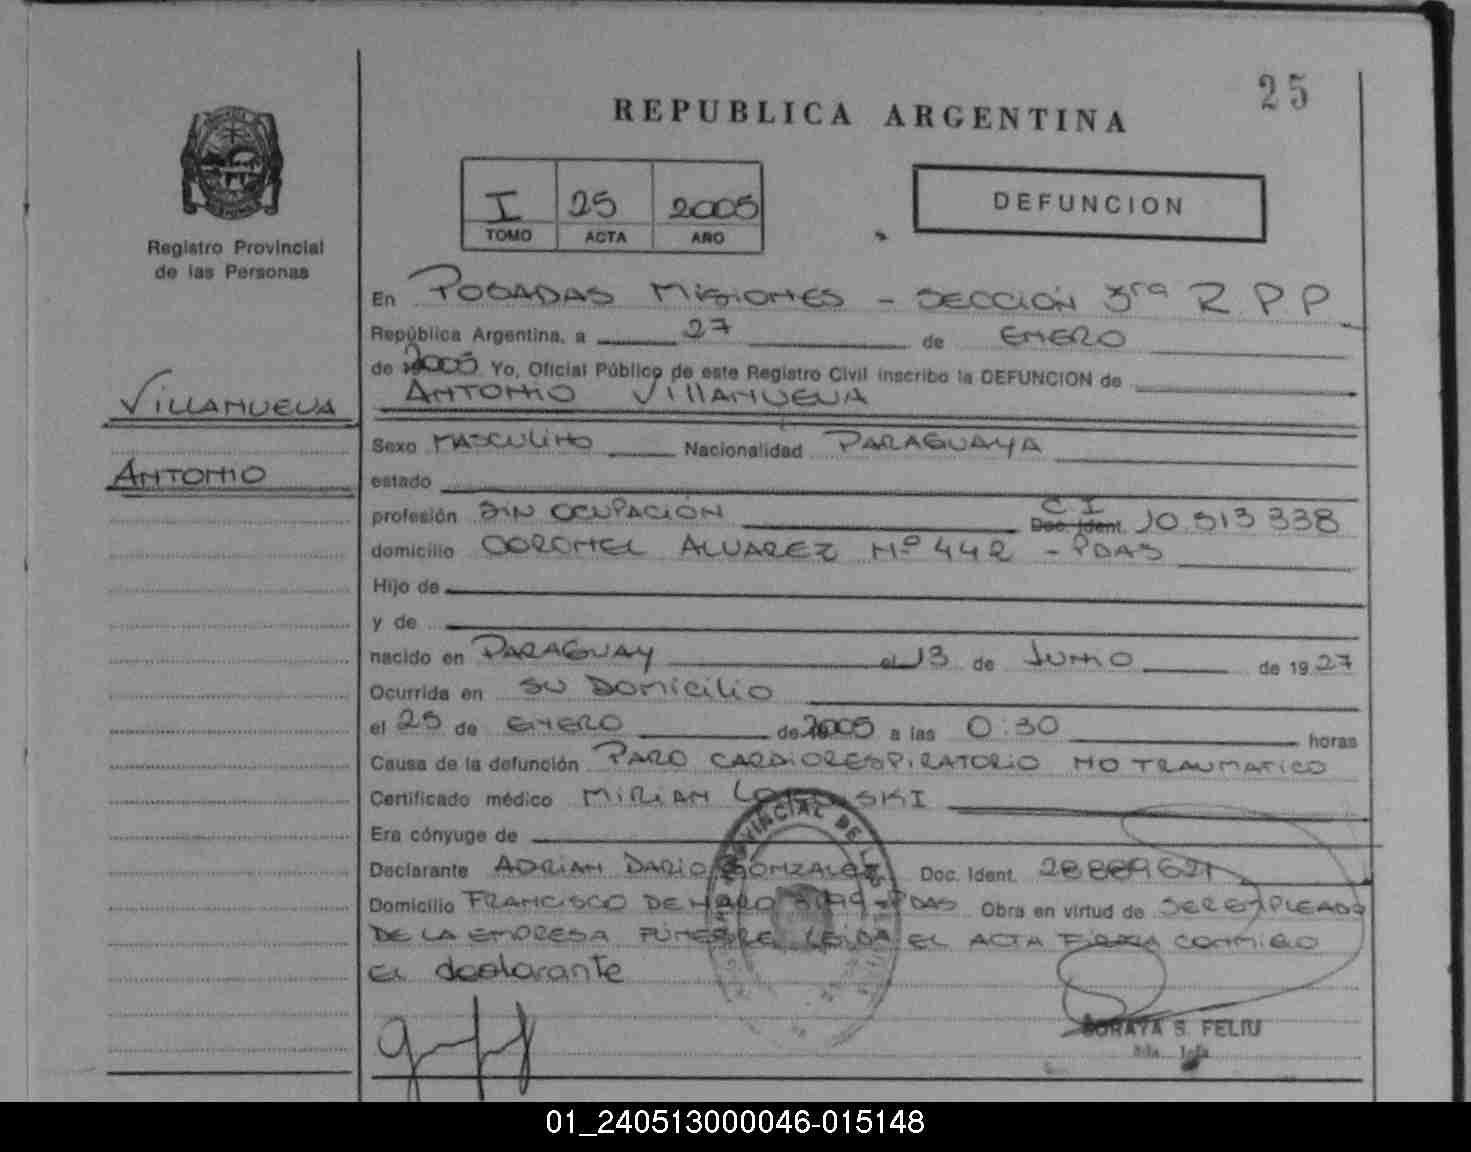 25
REPUBLICA ARGENTINA
I 25 2005
TOMO ACTA AÑO
DEFUNCION
Registro Provincial
de las Personas
En POSADAS MISIONES - SECCION 3ra R.P.P.
República Argentina, a 27 de ENERO
de 2005 Yo, Oficial Público de este Registro Civil inscribo la DEFUNCION de
ANTONIO VILLANUEVA
VILLANUEVA
ANTONIO
Sexo MASCULINO Nacionalidad PARAGUAYA
estado
profesión SIN OCUPACIÓN C.I Doc. Ident. 10.513338
domicilio CORONEL ALVAREZ Nº 442 - PDAS
Hijo de
y de
nacido en PARAGUAY el 13 de JUNIO de 1927
Ocurrida en SU DOMICILIO
el 25 de ENERO de 2005 a las 0:30 horas
Causa de la defunción PARO CARDIORESPIRATORIO NO TRAUMATICO
Certificado médico MIRIAN
Era cónyuge de
Declarante ADRIAN DARIO GONZALEZ Doc. Ident. 28889621
Domicilio FRANCISCO DE HARO PDAS Obra en virtud de SER EMPLEADO
DE LA EMPRESA FUNEBRE LEIDA EL ACTA FIRMA CONMIGO
EL declarante
SORAYA S. FELIU
01_240513000046-015148